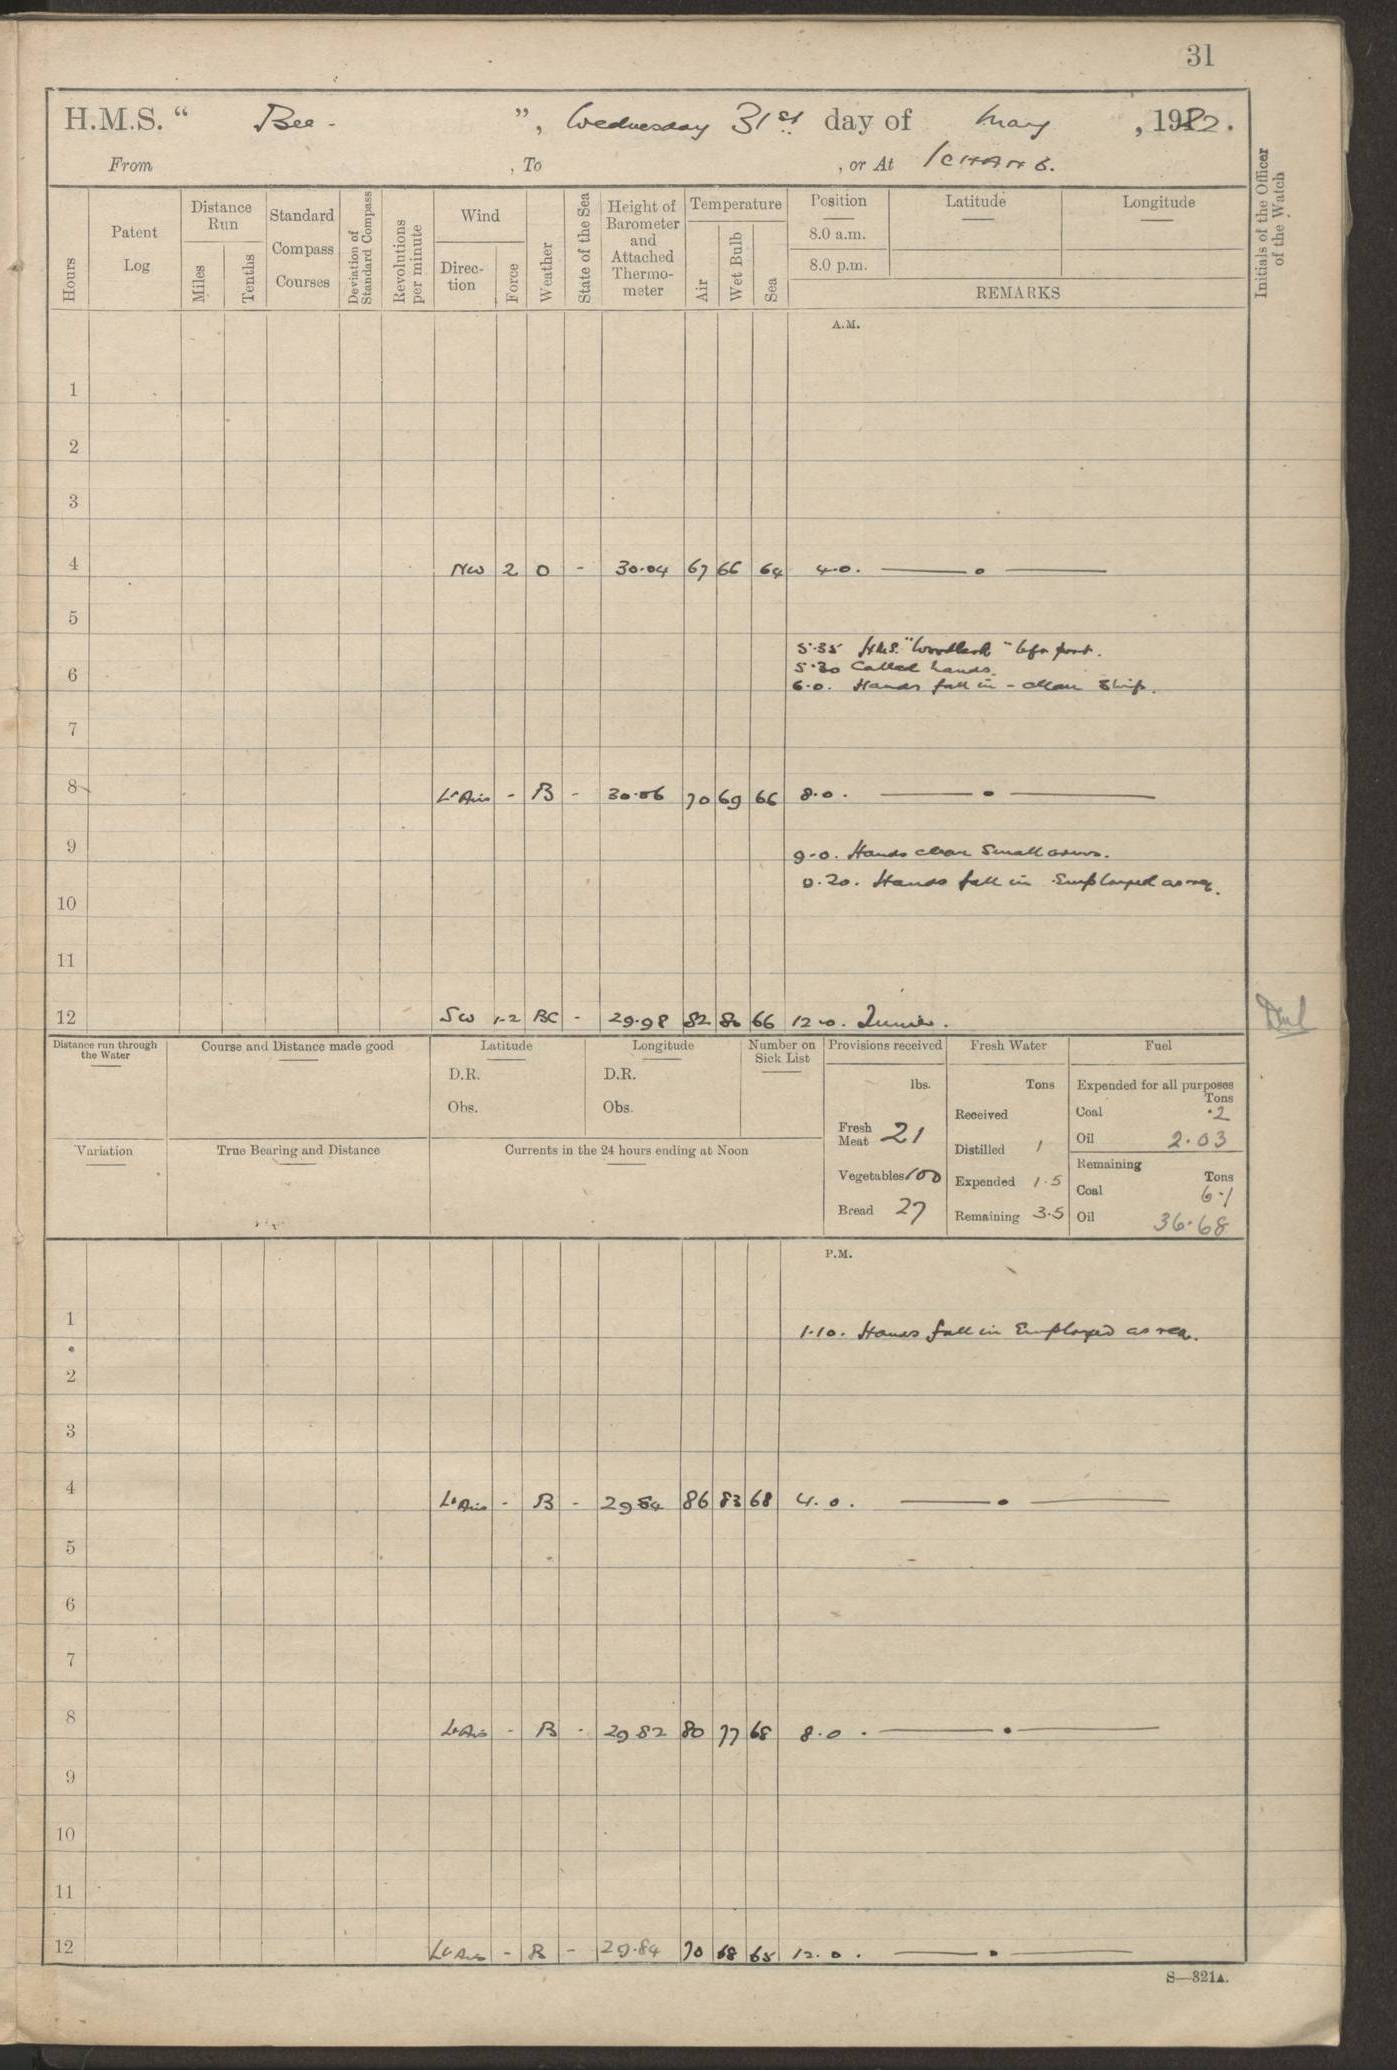 31
H.M.S. “ Bee. ”, Wednesday 31st day of May , 1922.
From , To , or At ICHANG.
Hours
Patent Log
Distance Run
Miles
Tenths
Standard Compass Courses
Deviation of Standard Compass
Revolutions per minute
Wind
Direction
Force
Weather
State of the Sea
Height of Barometer and Attached Thermometer
Temperature
Air
Wet Bulb
Sea
Position
8.0 a.m.
8.0 p.m.
Latitude
Longitude
REMARKS
Initials of the Officer of the Watch
A.M.
1
2
3
4 NW 2 O - 30.04 67 66 64 4.0.
5
5.35 H.M.S. "Woodlark" left port.
5.30 Called hands.
6 6.0. Hands fall in - clean Ship.
7
8 Lt Airs - B - 30.06 70 69 66 8.0.
9 9.0. Hands clean Small arms.
0.20. Hands fall in Employed as req.
10
11
12 SW 1-2 BC - 29.98 82 80 66 12.0. Dinner.
Distance run through the Water
Course and Distance made good
Latitude
D.R.
Obs.
Longitude
D.R.
Obs.
Number on Sick List
Provisions received
lbs.
Fresh Meat 21
Vegetables 100
Bread 27
Fresh Water
Tons
Received
Distilled 1
Expended 1.5
Remaining 3.5
Fuel
Expended for all purposes
Tons
Coal .2
Oil 2.03
Remaining
Tons
Coal 6.1
Oil 36.68
Variation
True Bearing and Distance
Currents in the 24 hours ending at Noon
P.M.
1 1.10. Hands fall in Employed as req.
2
3
4 Lt Airs - B - 29 84 86 83 68 4.0.
5
6
7
8 Lt Airs - B - 29 82 80 77 68 8.0.
9
10
11
12 Lt Airs - B - 29.84 70 68 65 12.0.
S—321A.